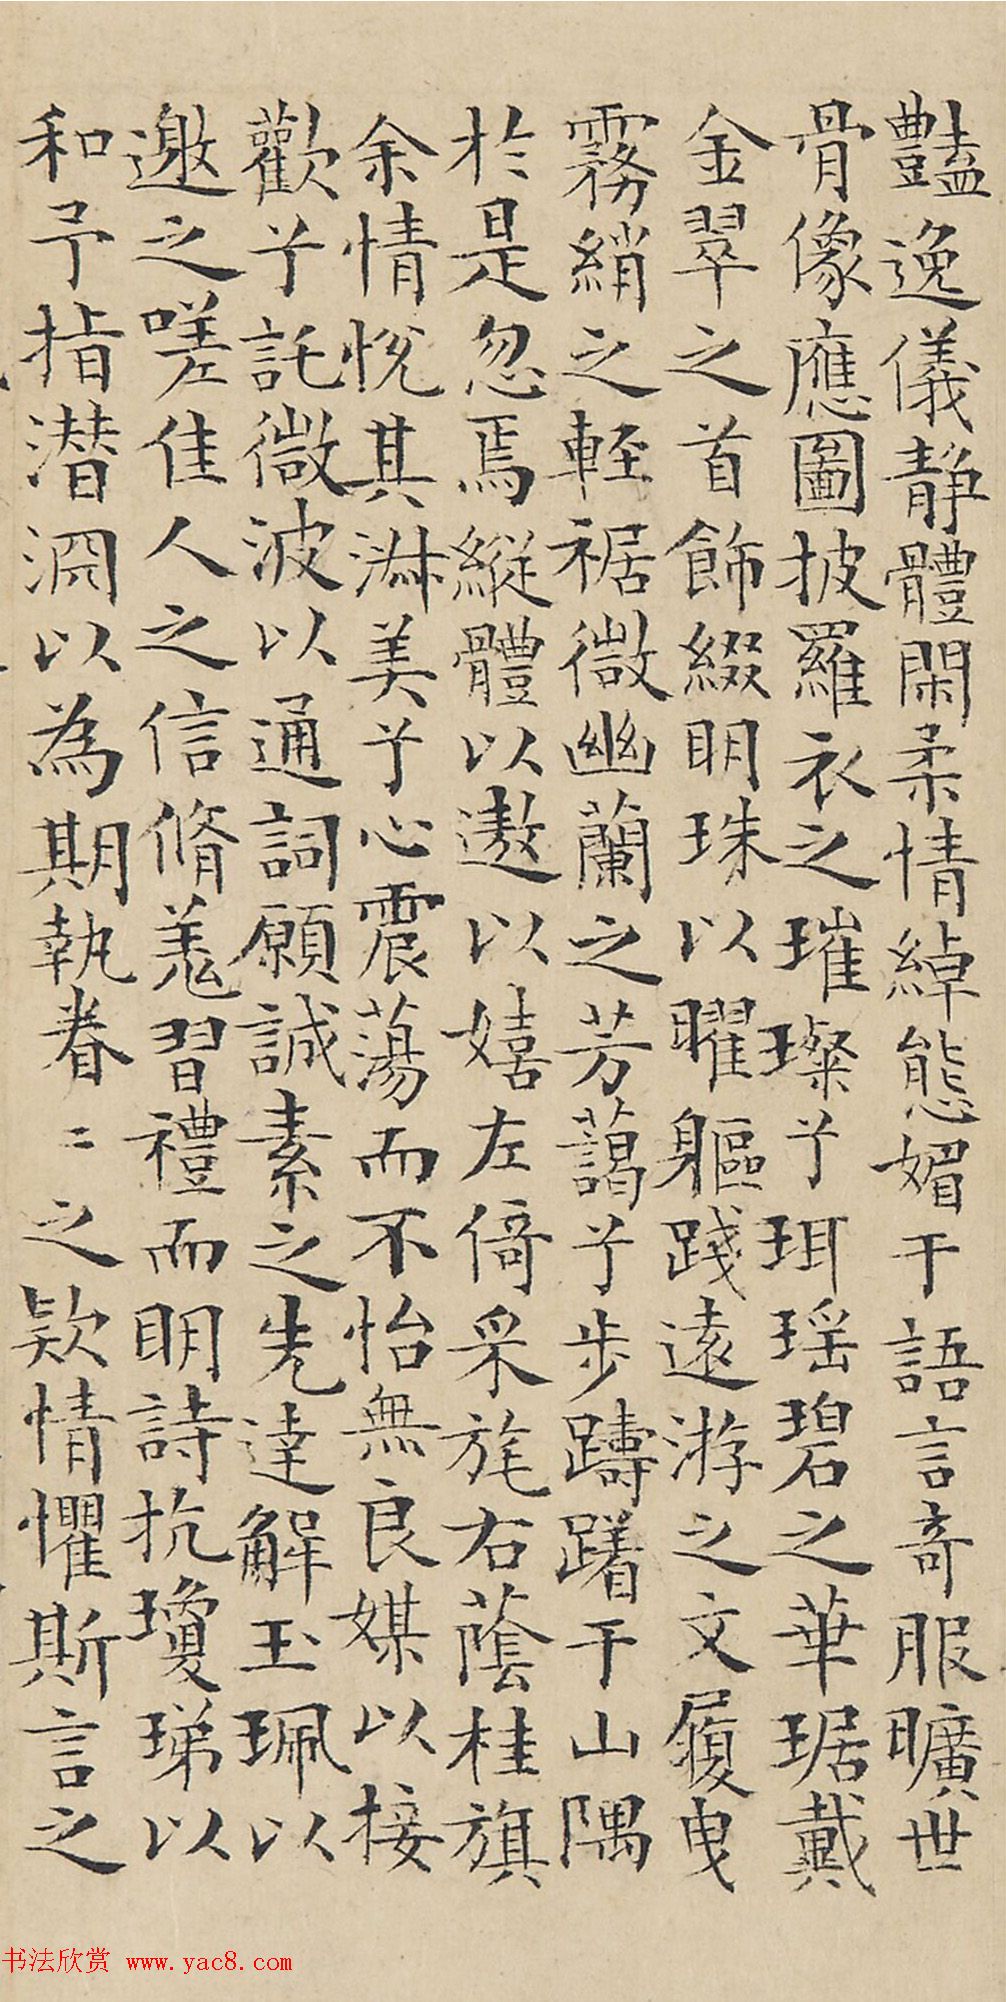 豔逸儀静體閑柔情綽態媚于語言奇服曠世
骨像應圖披羅衣之璀璨兮珥瑶碧之華琚戴
金翠之首飾綴明珠以曜軀踐遠游之文履曳
霧綃之輕裾微幽蘭之芳藹兮步躊躇于山隅
於是忽焉縱體以遨以嬉左倚采旄右蔭桂旗
余情悅其淋美兮心震蕩而不怡無良媒以接
歡兮託微波以通詞願誠素之先達解玉珮以
邀之嗟佳人之信脩羌習禮而明詩抗瓊珶以
和予指潛淵以為期執眷〻之欵情懼斯言之
书法欣赏 www.yac8.com